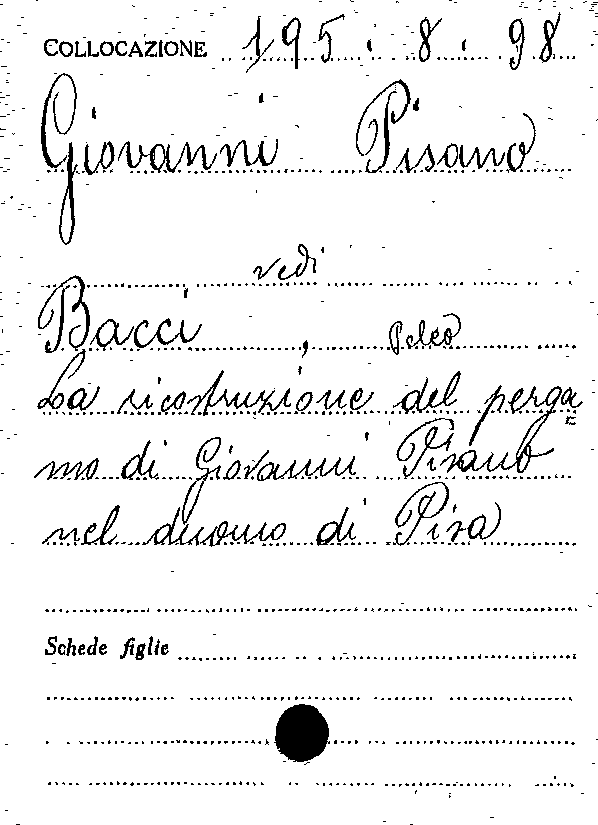 COLLOCAZIONE 195.8.98
Giovanni Pisano
vedi
Bacci, Peleo
La ricostruzione del perga
mo di Giovanni Pisano
nel duomo di Pisa
Schede figlie